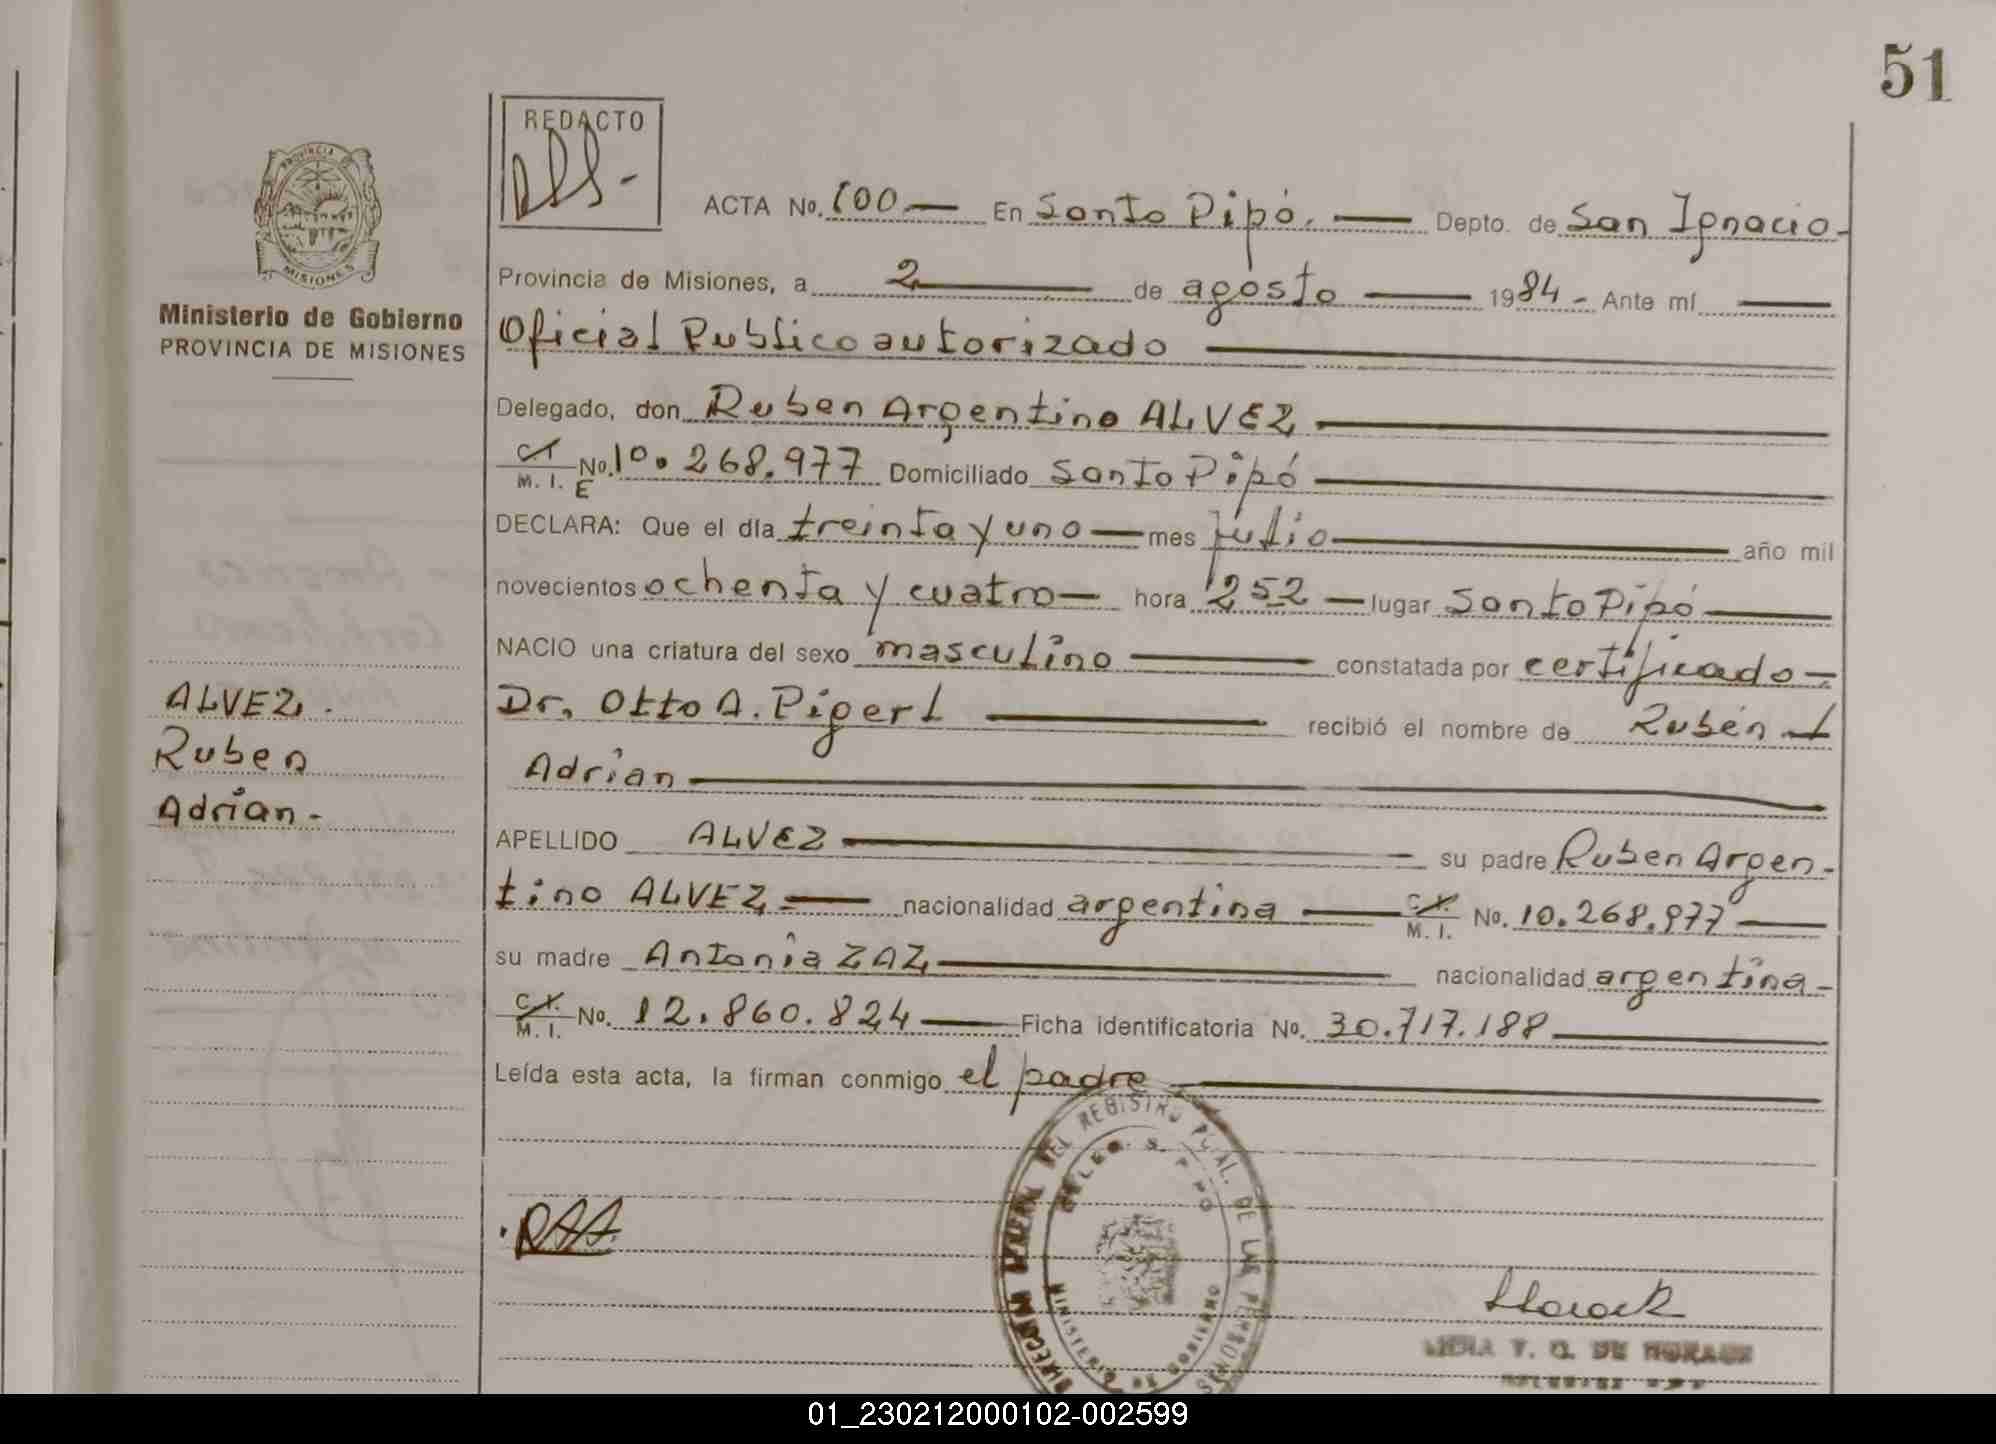 51
REDACTO
PROVINCIA DE
MISIONES
Ministerio de Gobierno
PROVINCIA DE MISIONES
ACTA No. 100 — En Santo Pipó. — Depto. de San Ignacio -
Provincia de Misiones, a 2 — de agosto — 1984 - Ante mí —
Oficial Publico autorizado —
Delegado, don Ruben Argentino ALVEZ —
C.I. M. I. No. E 10.268.977 Domiciliado Santo Pipó —
DECLARA: Que el día treinta y uno — mes julio — año mil
novecientos ochenta y cuatro — hora 252 — lugar Santo Pipó —
NACIO una criatura del sexo masculino — constatada por certificado —
Dr. Otto A. Pigerl — recibió el nombre de Rubén —
Adrian —
APELLIDO ALVEZ — su padre Ruben Argen-
tino ALVEZ — nacionalidad argentina — C.I. M. I. No. 10.268.977 —
su madre Antonia ZAZ — nacionalidad argentina -
C.I. M. I. No. 12.860.824 — Ficha identificatoria No. 30.717.188 —
Leída esta acta, la firman conmigo el padre —
ALVEZ.
Ruben
Adrian -
DEL REGISTRO PCIAL. DE LAS PERSONAS
DELEG. S. PIPO
MINISTERIO DE GOBIERNO
DE MORAES
01_230212000102-002599